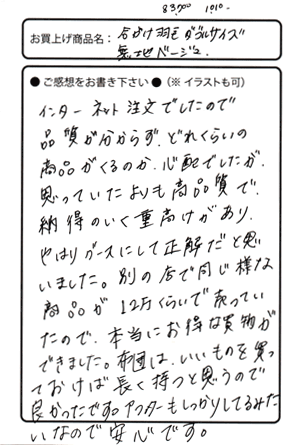 83700 1010-
お買上げ商品名: 合かけ羽毛ダブルサイズ
無地ベージュ
● ご感想をお書き下さい ● (※ イラストも可)
インターネット注文でしたので
品質が分からず、どれくらいの
商品がくるのか、心配でしたが、
思っていたよりも高品質で、
納得のいく重高けがあり、
やはりグースにして正解だと思
いました。別の店で同じ様な
商品が12万くらいで売ってい
たので、本当にお得な買物が
できました。布団は、いいものを買っ
ておけば長く持つと思うので
良かったです。アフターもしっかりしてるみた
いなので安心です。